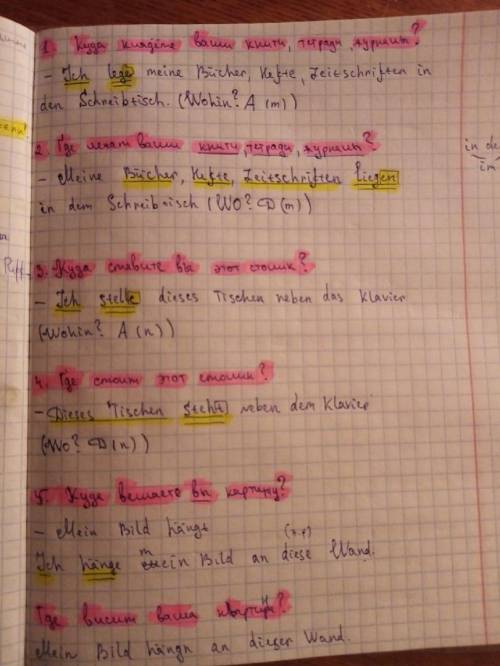 1. Куда кладёте ваши книги, тетради, журналы?
- Ich lege meine Bücher, Hefte, Zeitschriften in
den Schreibtisch. (Wohin? A (m))
2. Где лежат ваши книги, тетради, журналы?
- Meine Bücher, Hefte, Zeitschriften liegen
in dem Schreibtisch (Wo? D (m))
3. Куда ставите вы этот столик?
- Ich stelle dieses Tischen neben das Klavier
(Wohin? A (n))
4. Где стоит этот столик?
- Dieses Tischen steht neben dem Klavier
(Wo? D (n))
5. Куда вешаете вы картину?
- Mein Bild hängt
Ich hänge mein Bild an diese Wand.
Где висит ваша картина?
Mein Bild hängn an dieser Wand.
in de
im